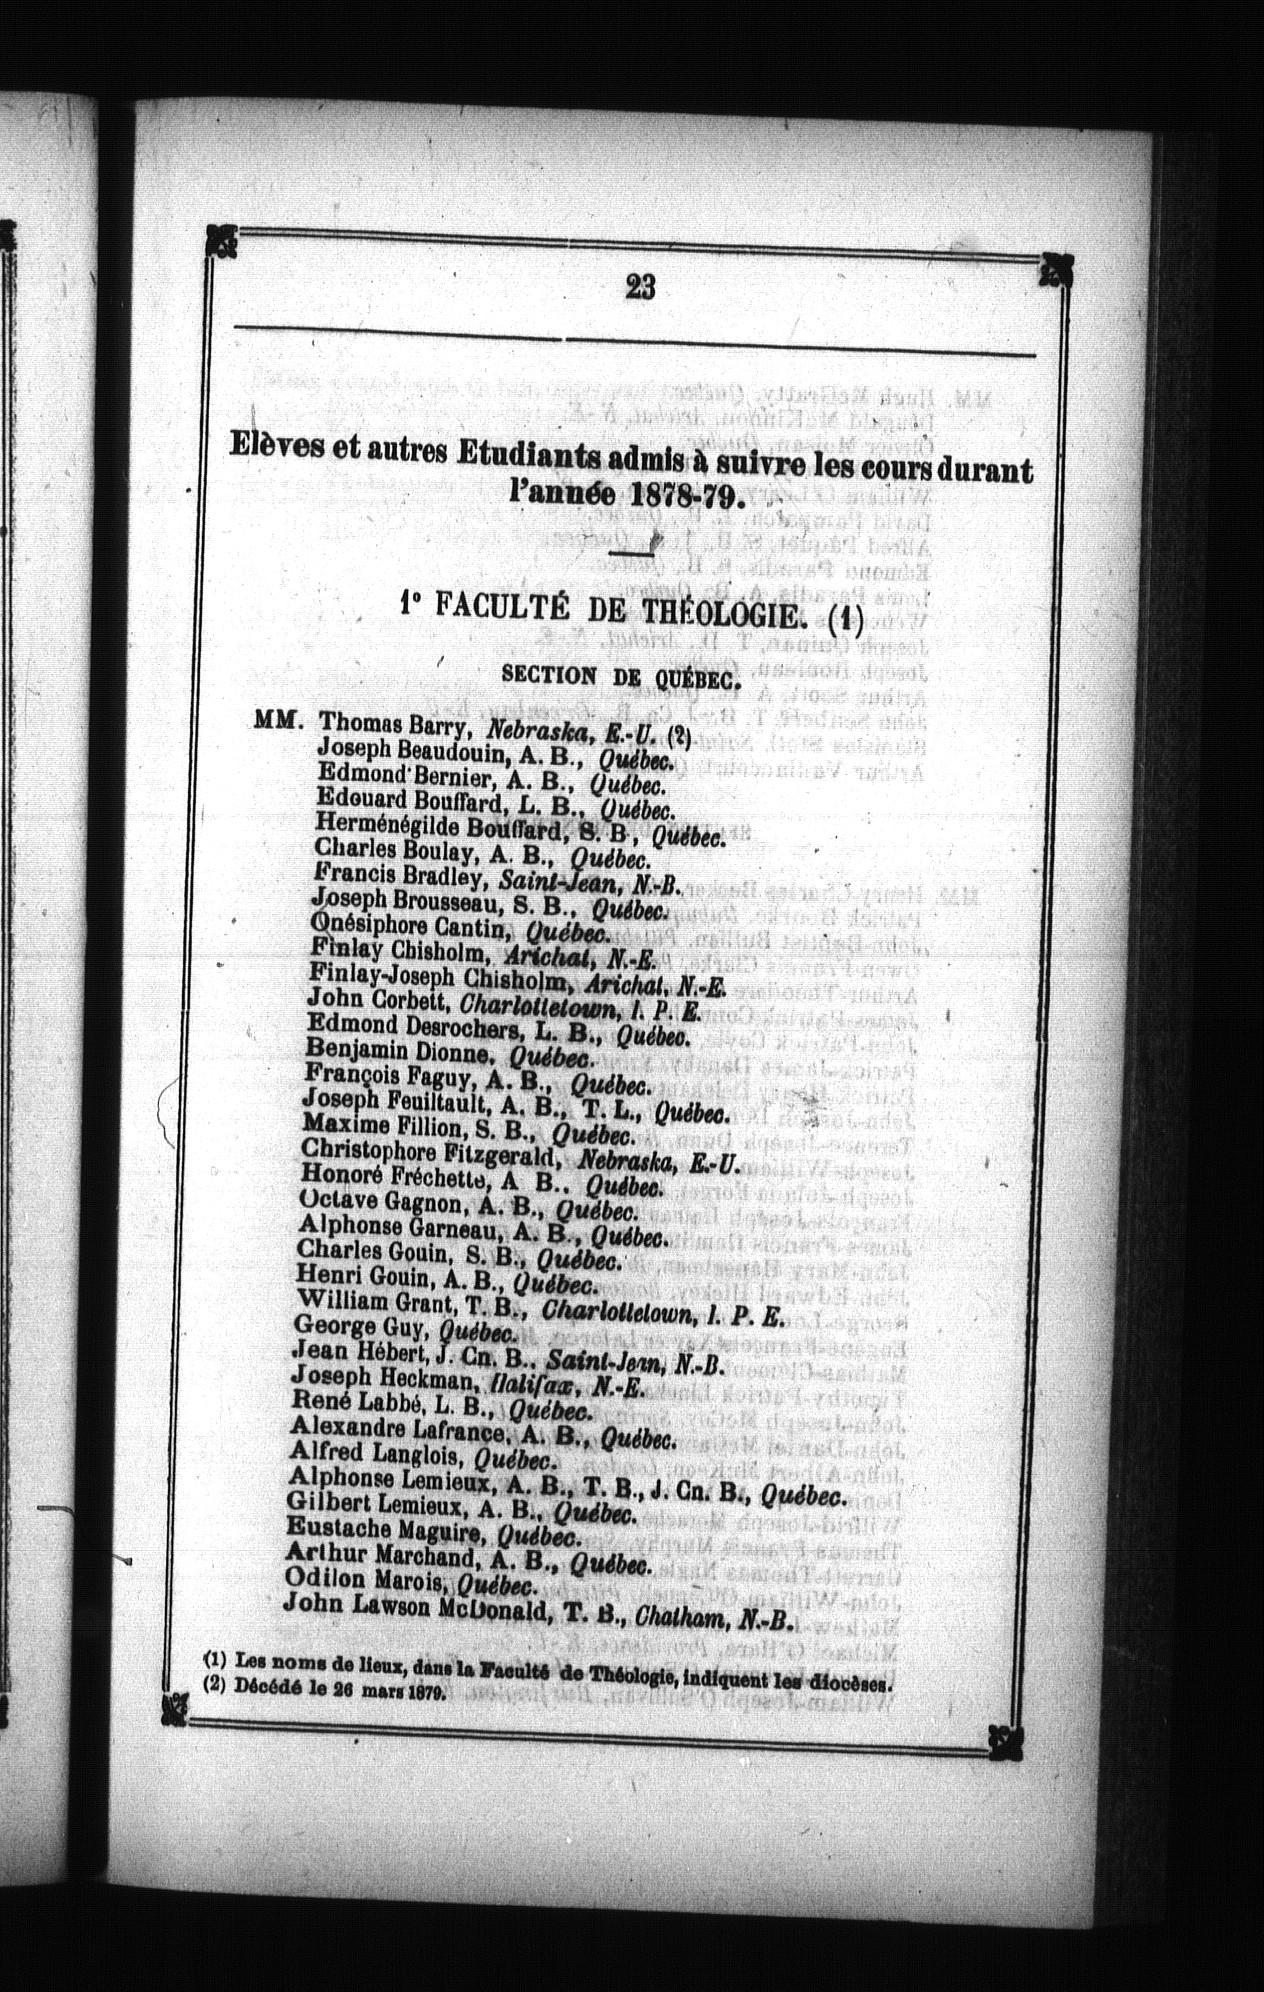 23
Elèves et autres Etudiants admis à suivre les cours durant
l'année 1878-79.
1° FACULTÉ DE THÉOLOGIE. (1)
SECTION DE QUÉBEC.
MM. Thomas Barry, Nebraska, E.-U. (2)
Joseph Beaudouin, A. B., Québec.
Edmond Bernier, A. B., Québec.
Edouard Bouffard, L. B., Québec.
Herménégilde Bouffard, S. B, Québec.
Charles Boulay, A. B., Québec.
Francis Bradley, Saint-Jean, N.-B.
Joseph Brousseau, S. B., Québec.
Onésiphore Cantin, Québec.
Finlay Chisholm, Arichat, N.-E.
Finlay-Joseph Chisholm, Arichat, N.-E.
John Corbett, Charlottetown, I. P. E.
Edmond Desrochers, L. B., Québec.
Benjamin Dionne, Québec.
François Faguy, A. B., Québec.
Joseph Feuiltault, A. B., T. L., Québec.
Maxime Fillion, S. B., Québec.
Christophore Fitzgerald, Nebraska, E.-U.
Honoré Fréchette, A B.. Québec.
Octave Gagnon, A. B., Québec.
Alphonse Garneau, A. B., Québec.
Charles Gouin, S. B., Québec.
Henri Gouin, A. B., Québec.
William Grant, T. B., Charlottetown, I. P. E.
George Guy, Québec.
Jean Hébert, J. Cn. B., Saint-Jean, N.-B.
Joseph Heckman, Halifax, N.-E.
René Labbé, L. B., Québec.
Alexandre Lafrance, A. B., Québec.
Alfred Langlois, Québec.
Alphonse Lemieux, A. B., T. B., J. Cn. B., Québec.
Gilbert Lemieux, A. B., Québec.
Eustache Maguire, Québec.
Arthur Marchand, A. B., Québec.
Odilon Marois, Québec.
John Lawson McDonald, T. B., Chatham, N.-B.
(1) Les noms de lieux, dans la Faculté de Théologie, indiquent les diocèses.
(2) Décédé le 26 mars 1879.